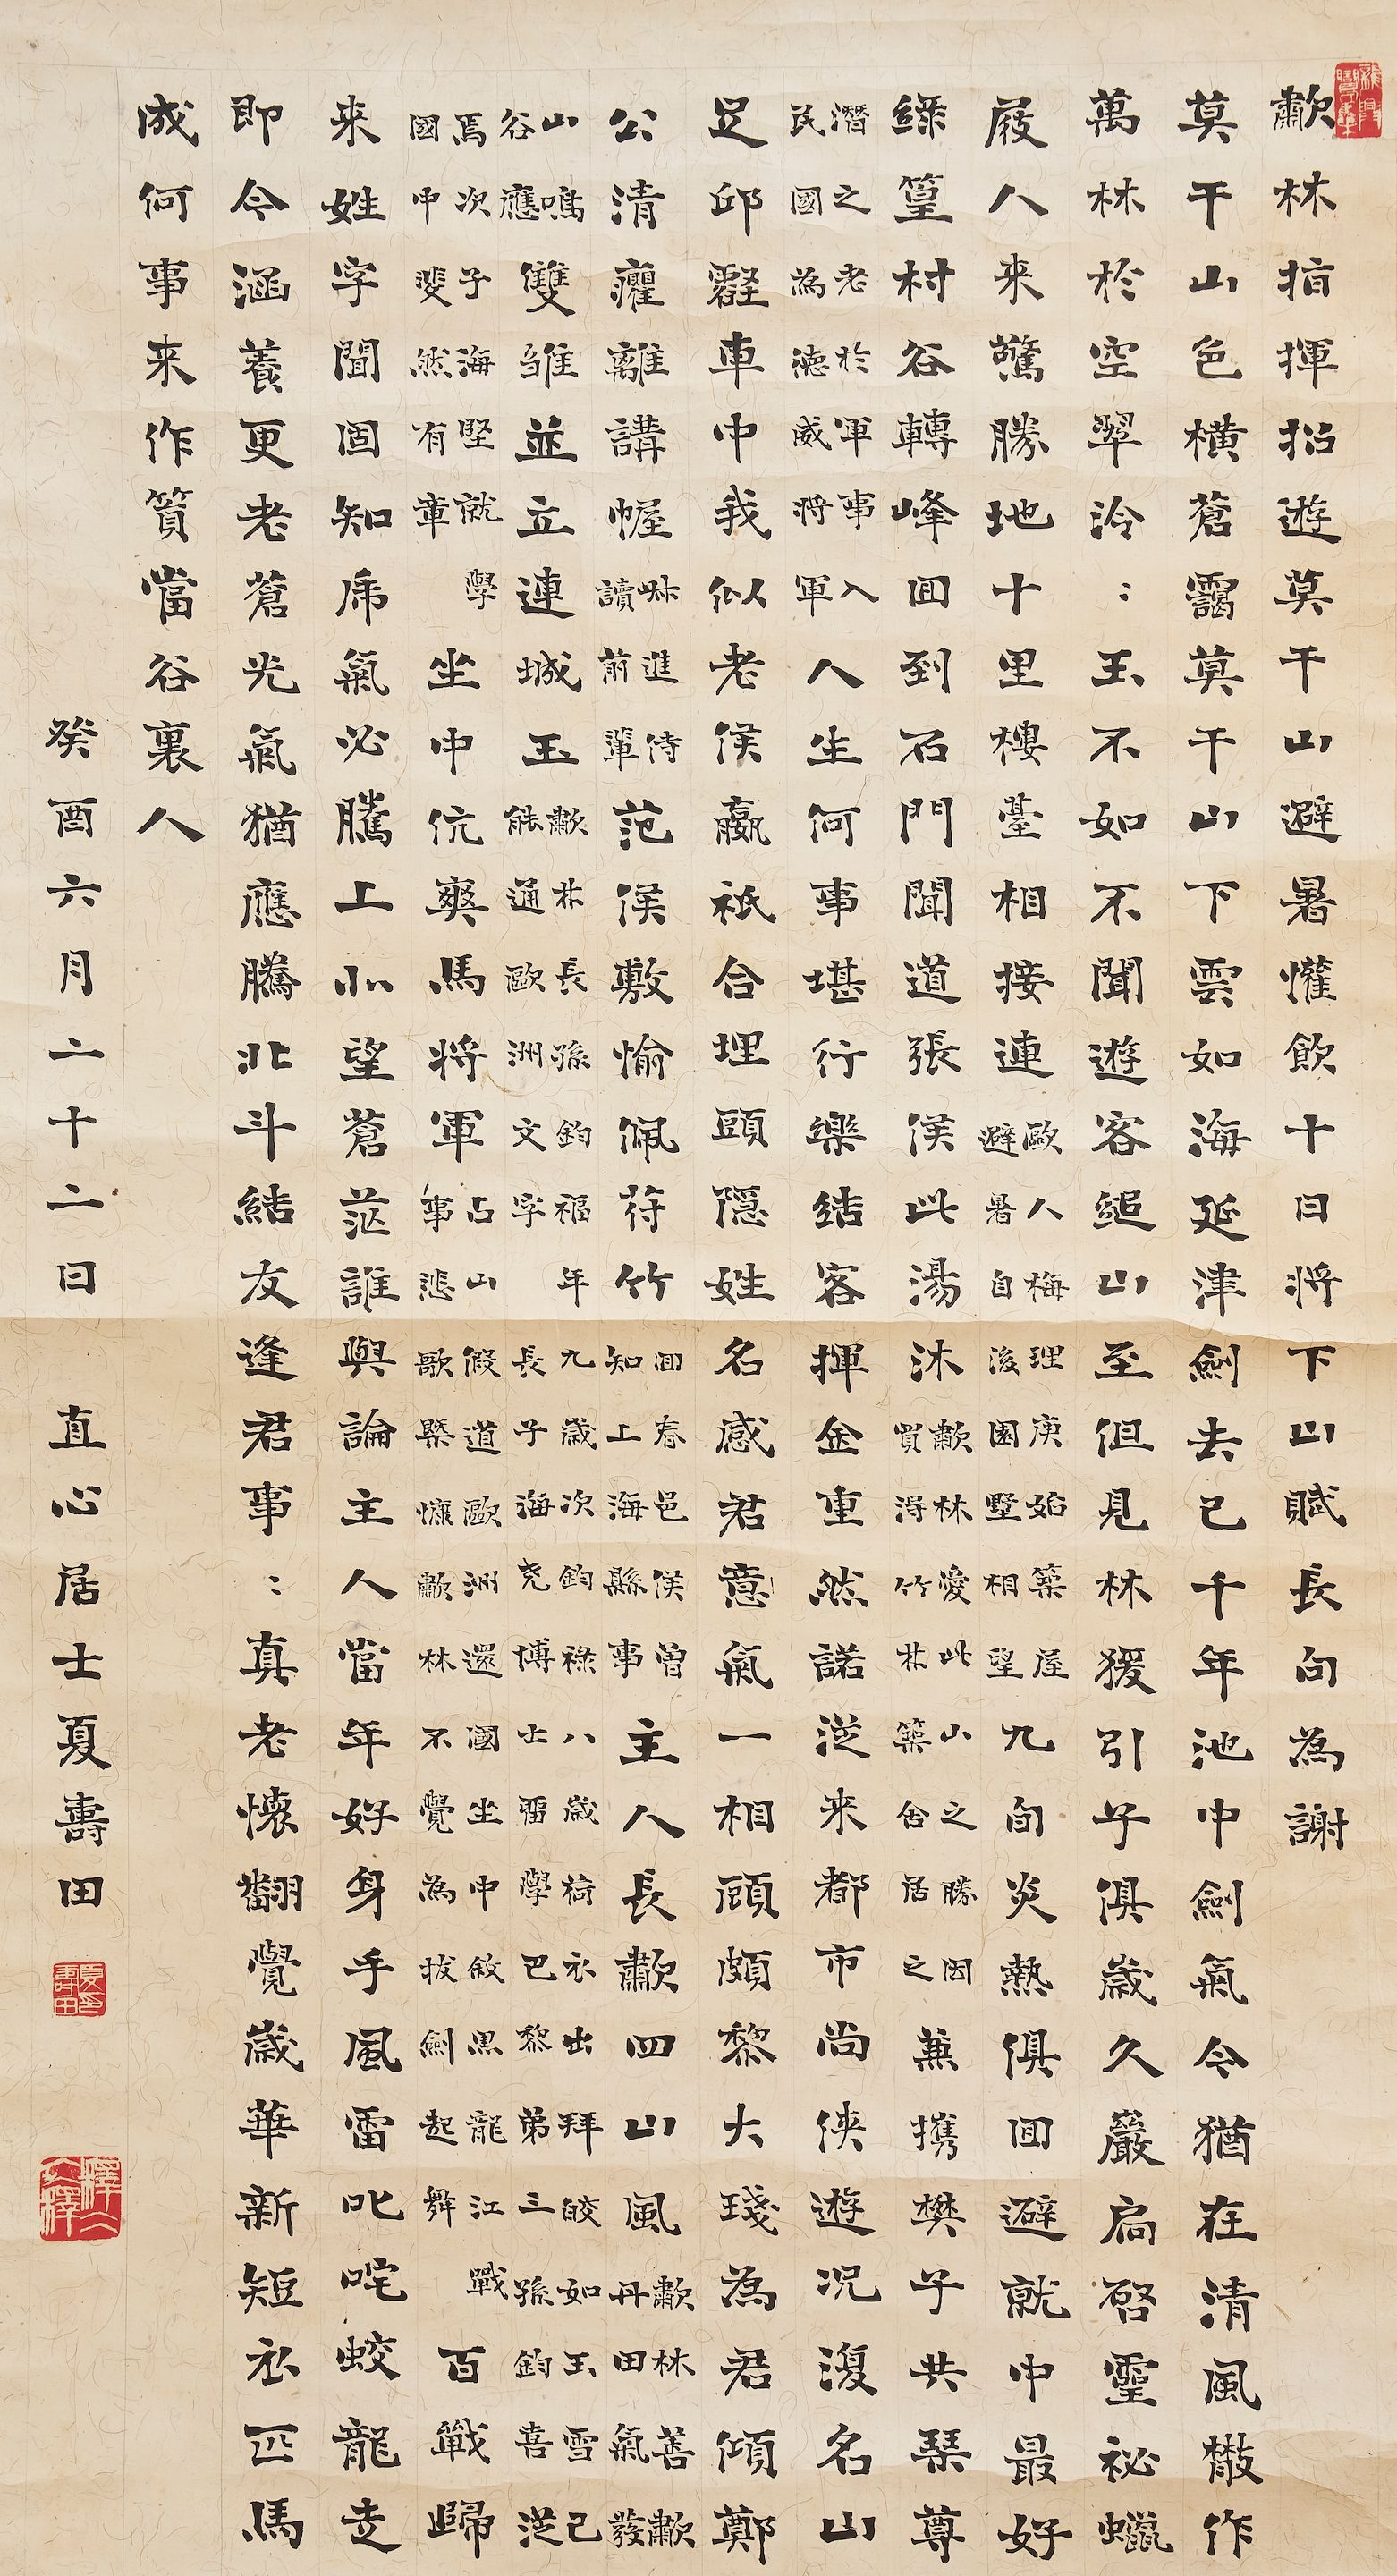 歗林指揮招遊莫干山避暑懽飲十日將下山賦長句為謝
莫干山色橫蒼靄莫干山下雲如海延津劍去已千年池中劍氣今猶在清風散作
萬林於空翠泠〻玉不如不聞遊客縋山至但見林猨引子俱歲久巖扃啓靈祕蠟
屐人来驚勝地十里樓臺相接連歐人梅理庚始築屋避暑自後園墅相望九旬炎熱俱回避就中最好
綠篁村谷轉峰回到石門聞道張侯此湯沐歗林愛此山之勝因買得竹林築舍居之兼攜樊子共琴尊
潛之老於軍事入民國為德威將軍人生何事堪行樂結客揮金重然諾從来都市尚俠遊況復名山
足邱壑車中我似老侯嬴祇合埋頭隱姓名感君意氣一相顧頗黎大琖為君傾鄭
公清癯離講幄進侍讀前輩范侯敷愉佩苻竹回春邑侯曾知上海縣事主人長歗四山風歗林善歗丹田氣發
山鳴谷應雙雛並立連城玉歗林長孫鈞福年九歲次鈞祿八歲荷衣出拜皎如玉雪己能通歐洲文字長子海尭博士留學巴黎弟三孫鈞喜從
焉次子海堅就學國中斐然有章坐中伉爽馬將軍占山假道歐洲還國坐中敘黑龍江戰事悲歌槩慷歗林不覺為拔劍起舞百戰歸
来姓字聞固知虎氣必騰上北望蒼茫誰與論主人當年好身手風雷叱咤蛟龍走
即今涵養更老蒼光氣猶應騰北斗結友逢君事〻真老懷翻覺歲華新短衣匹馬
成何事来作篔簹谷裏人
癸酉六月二十二日 直心居士夏壽田